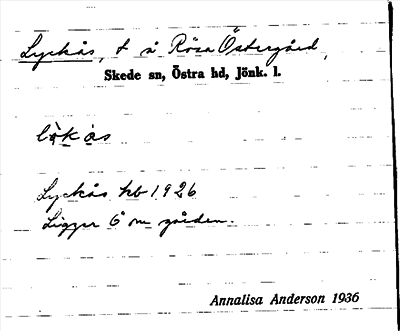 Lyckås, t å Rösa Östergård,
Skede sn, Östra hd, Jönk. l.
Lyckås kb 1926
Ligger Ö om gården.
Annalisa Anderson 1936